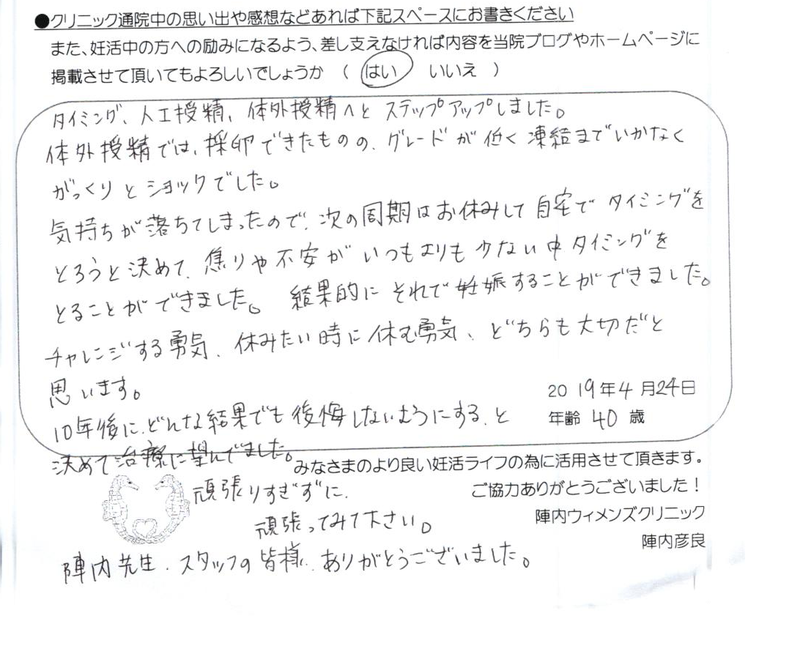 ●クリニック通院中の思い出や感想などあれば下記スペースにお書きください
また、妊活中の方への励みになるよう、差し支えなければ内容を当院ブログやホームページに
掲載させて頂いてもよろしいでしょうか ( はい いいえ )
タイミング、人工授精、体外授精へと ステップアップしました。
体外授精では、採卵できたものの、グレードが低く凍結までいかなく
がっくりとショックでした。
気持ちが落ちてしまったので、次の周期はお休みして自宅でタイミングを
とろうと決めて、焦りや不安がいつもよりも少ない中タイミングを
とることができました。 結果的にそれで妊娠することができました。
チャレンジする勇気、休みたい時に休む勇気、どちらも大切だと
思います。
10年後に、どんな結果でも後悔しないようにする、と
決めて治療に望んでました。
2019年4月24日
年齢 40 歳
みなさまのより良い妊活ライフの為に活用させて頂きます。
頑張りすぎずに、
ご協力ありがとうございました!
頑張ってみて下さい。
陣内ウィメンズクリニック
陣内彦良
陣内先生、スタッフの皆様、ありがとうございました。